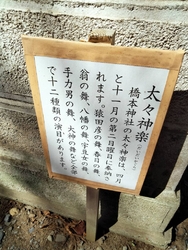 太々神楽
橋本神社の太々神楽は、四月
と十一月の第二日曜日に奉納さ
れます。猿田彦の舞、春日の舞、
翁の舞、八幡の舞、
手力男の舞、大神の舞など全部
で十二種類の演目があります。